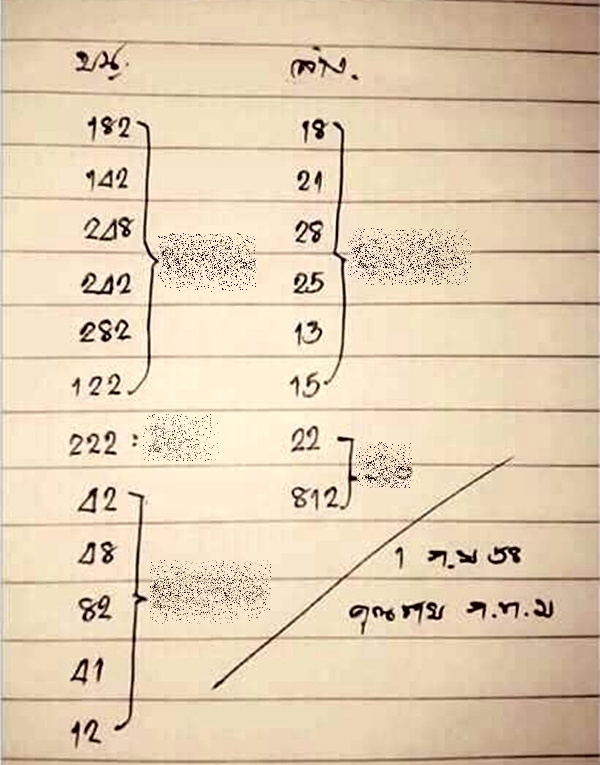 บน. ล่าง.
182 18
142 21
248 28
242 25
282 13
122 15
222 : 22
42 812
48
82
41
12
1 ก.พ 58
คุณชาย ก.ท.ม